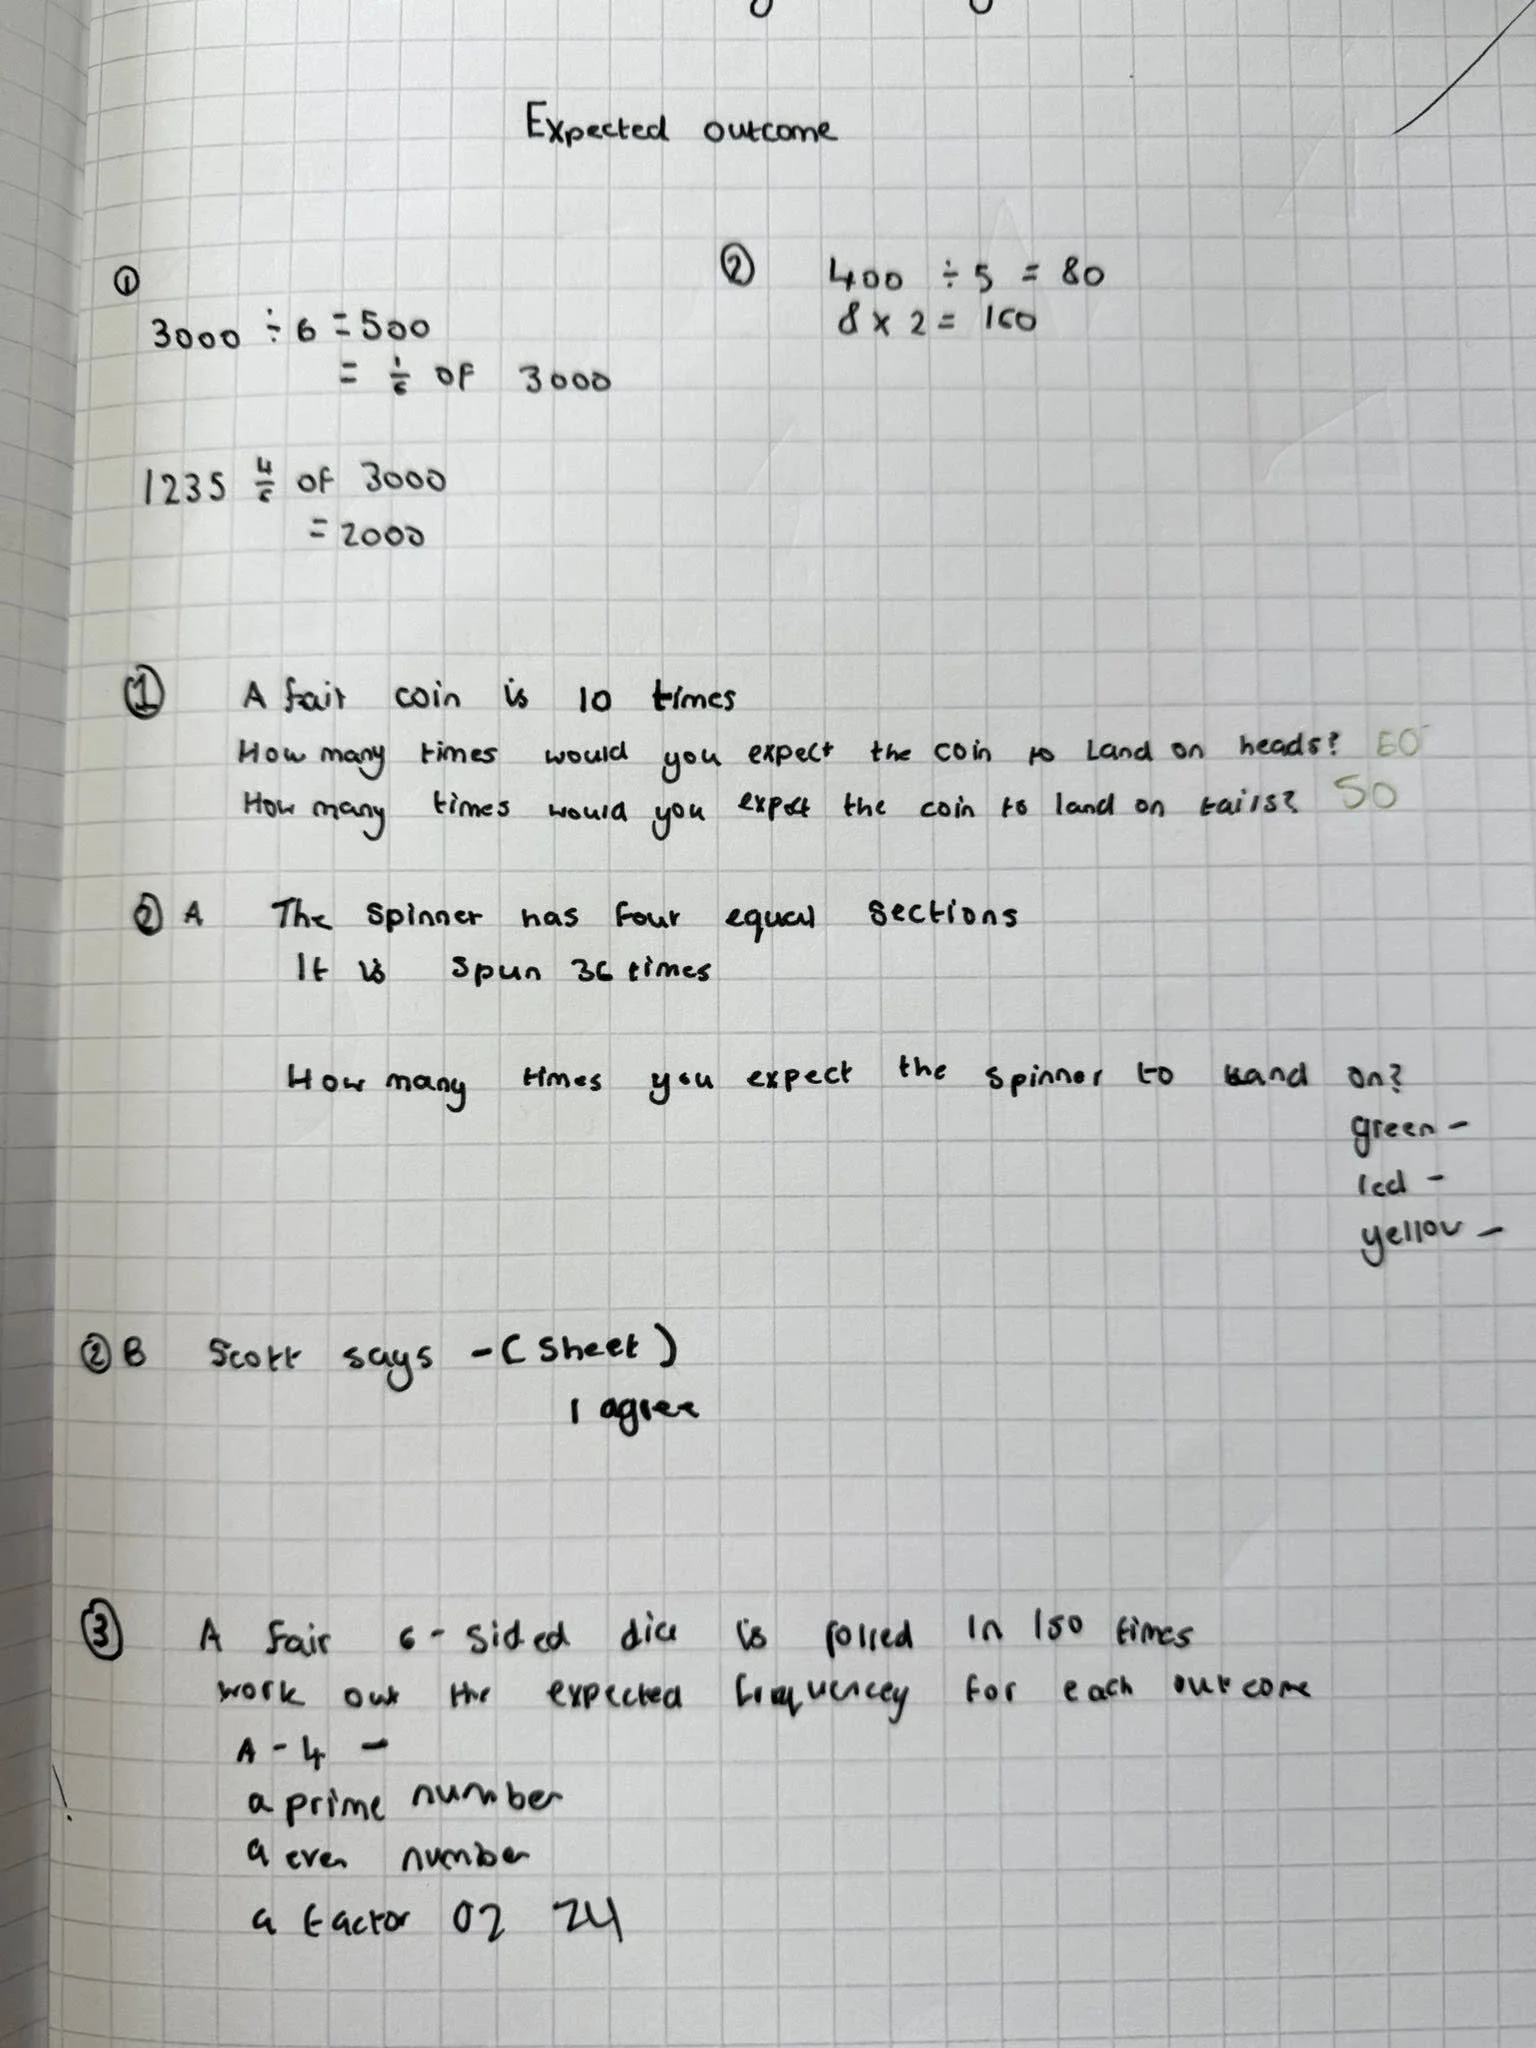 Expected outcome
①
3000 ÷ 6 = 500
= 1/6 of 3000
1235 4/6 of 3000
= 2000
② 400 ÷ 5 = 80
8 x 2 = 160
① A fair coin is 10 times
How many times would you expect the coin to Land on heads? 50
How many times would you expect the coin to land on tails? 50
② A The spinner has four equal sections
It is spun 36 times
How many times you expect the spinner to land on?
green -
red -
yellow -
② B Scott says - (sheet)
I agree
③ A fair 6-sided dice is rolled in 150 times
work out the expected frequencey for each outcome
A - 4 -
a prime number
a even number
a factor 02 24